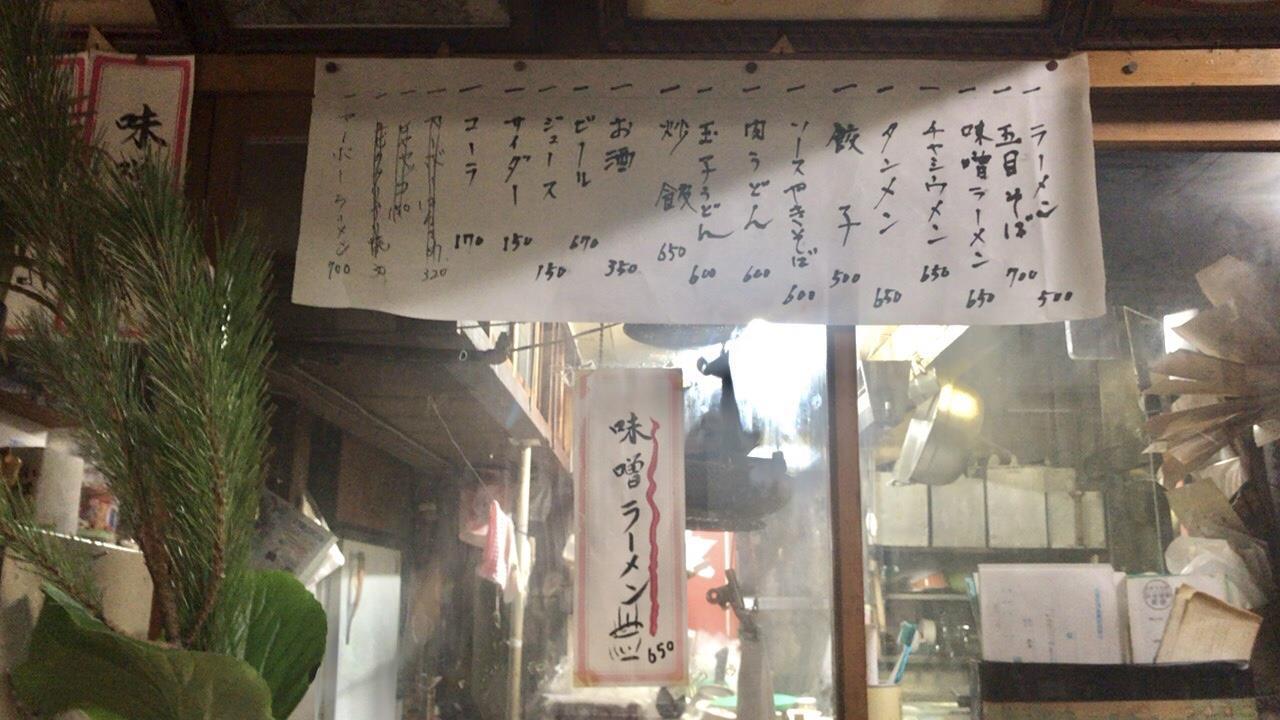 一 ラーメン 500
一 五目そば 700
一 味噌ラーメン 650
一 チャシウメン 650
一 タンメン 650
一 餃子 500
一 ソースやきそば 600
一 肉うどん 600
一 玉子うどん 600
一 炒飯 650
一 お酒 350
一 ビール 670
一 ジュース 150
一 サイダー 150
一 コーラ 170
320
ラーメン 900
味噌ラーメン 650
味噌